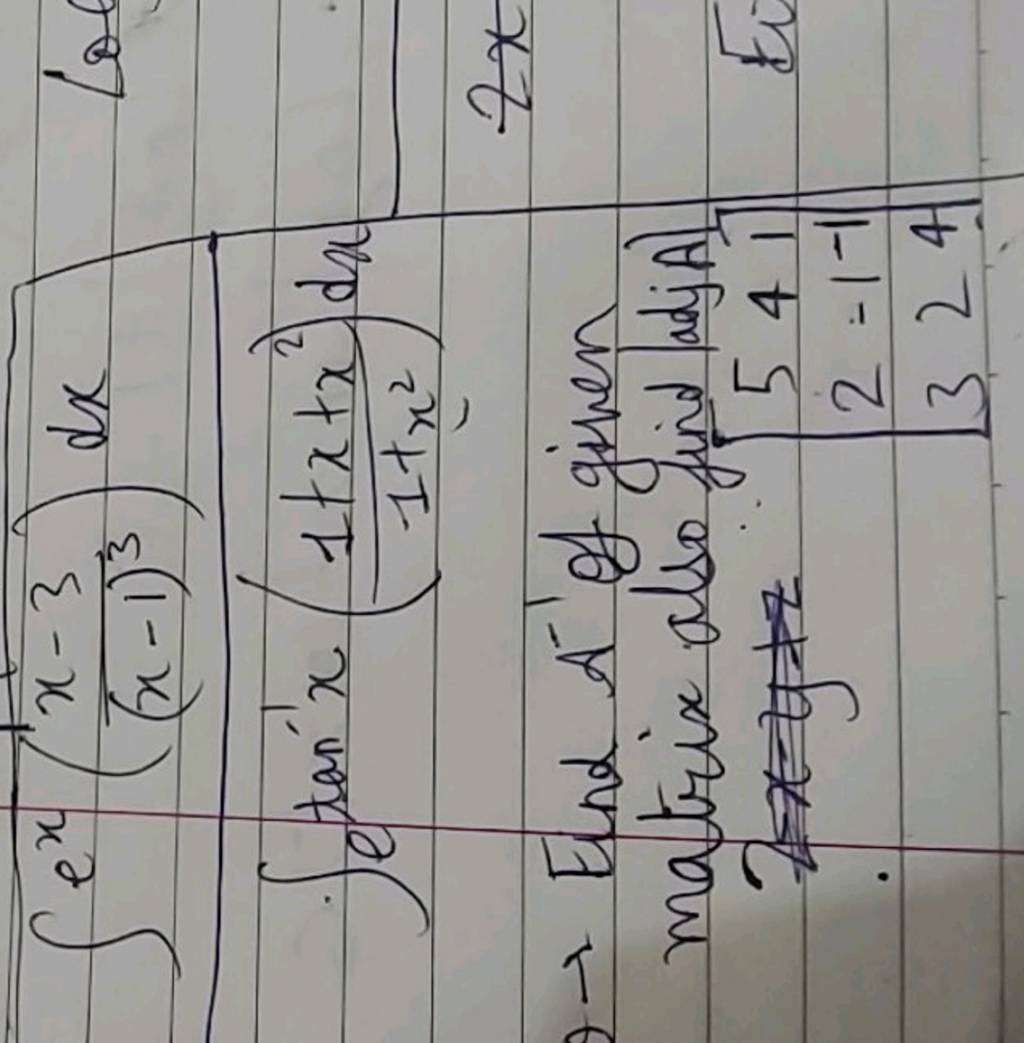 ∫ eˣ ( (x - 3) / (x - 1)³ ) dx
∫ e^(tan⁻¹x) ( (1 + x + x²) / (1 + x²) ) dx
→ Find A⁻¹ of given
matrix also find |adj A|
[ 5 4 1
2 -1 -1
3 2 4 ]
2x